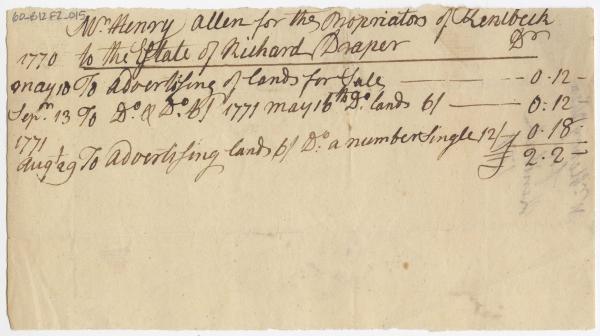 60-B12 F2-015
Mr Henry Allen for the Propriators of Kenebeck
1770 to the Estate of Richard Draper Dr
May 10 To Advertising of lands for Sale 0.12
Sepr. 13 To Do. & Do. 6/ 1771 may 16th Do. lands 6/ 0.12
1771
Augt 29 To Advertising lands 6/ Do. a number single 12/ 0.18
£ 2.2